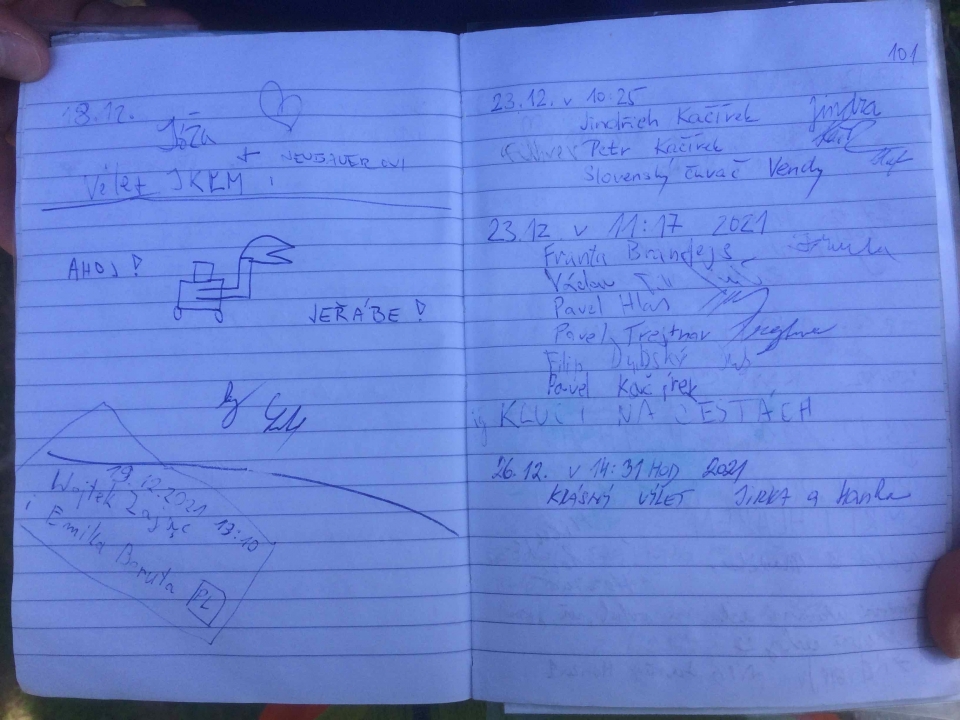 18.12.
Jóža
+
Výlet JKLM
AHOJ!
JEŘÁBE!
19.12.2021
Wojtek Zając 13:10
Emilia Boruta PL
101
23.12. v 10:25
Jindřich Kačírek Jindra
Petr Kačírek
Slovenský čuvač Vendy
23.12 v 11:17 2021
Franta Brandejs
Václav
Pavel Hlas
Pavel Trejtnar
Filip Dubský
Pavel Kačírek
ig KLUCI NA CESTÁCH
26.12. v 14:31 HOD 2021
KRÁSNÝ VÝLET JIRKA a Hanka